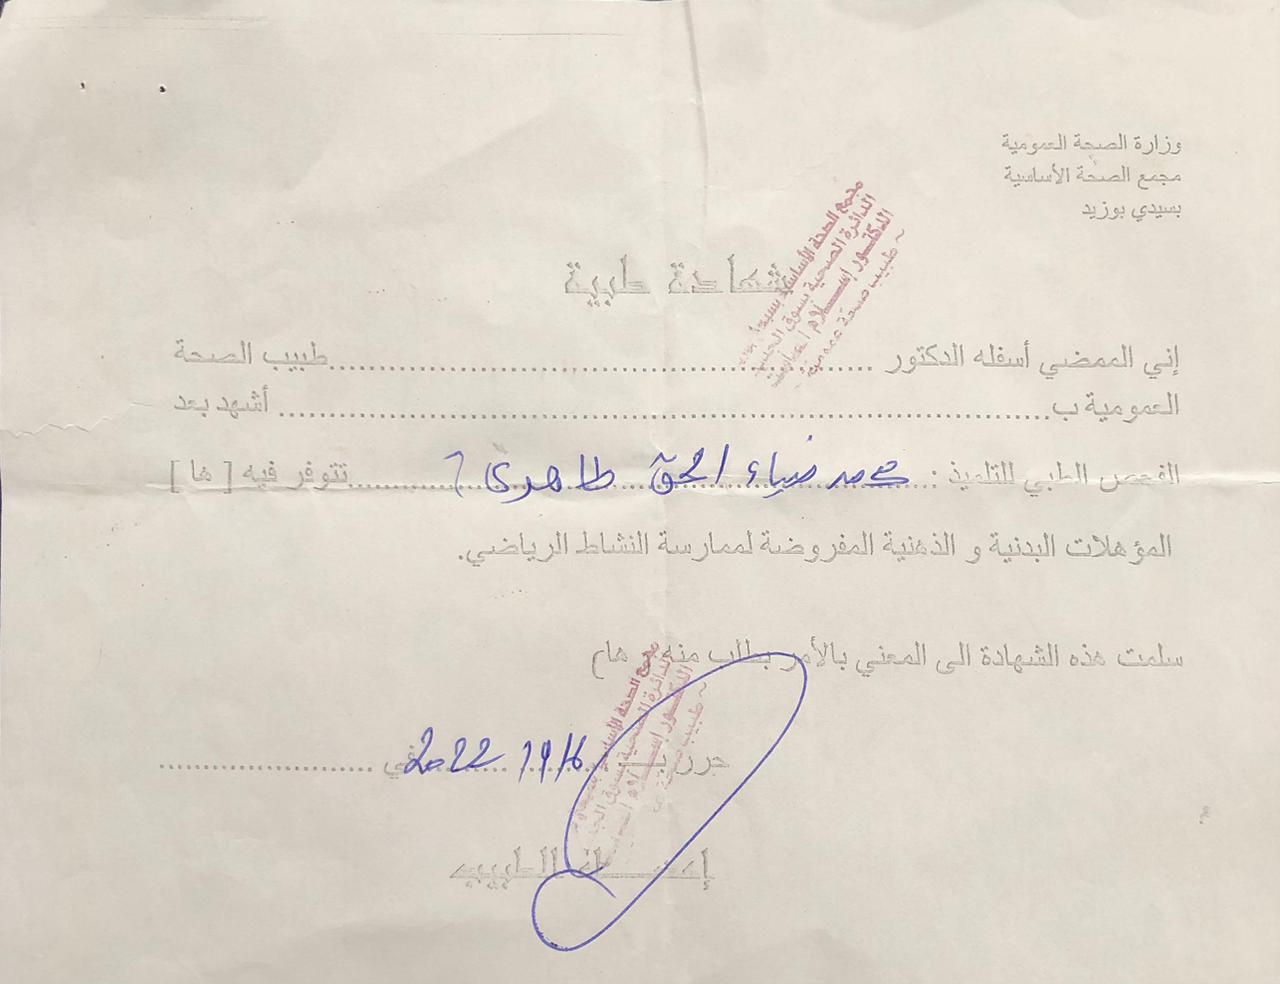 وزارة الصحة العمومية
مجمع الصحة الأساسية
بسيدي بوزيد
مجمع الصحة الأساسية بسيدي
الدائرة الصحية بسوق الجديد
الدكتور إسلام
طبيب صحة عمومية
شهادة طبية
إني الممضي أسفله الدكتور ........................ طبيب الصحة
العمومية ب........................ أشهد بعد
الفحص الطبي للتلميذ : محمد ضياء الحق طاهري تتوفر فيه [ ها ]
المؤهلات البدنية و الذهنية المفروضة لممارسة النشاط الرياضي.
سلمت هذه الشهادة الى المعني بالأمر بطلب منه ( ها)
حرر بـ ........ في ........................
2022
مجمع الصحة الأساسية
الدائرة الصحية بسوق الجديد
الدكتور إسلام
طبيب
إمضاء الطبيب